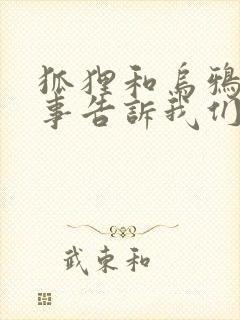 狐狸和烏鴉
事告訴我们
武東和